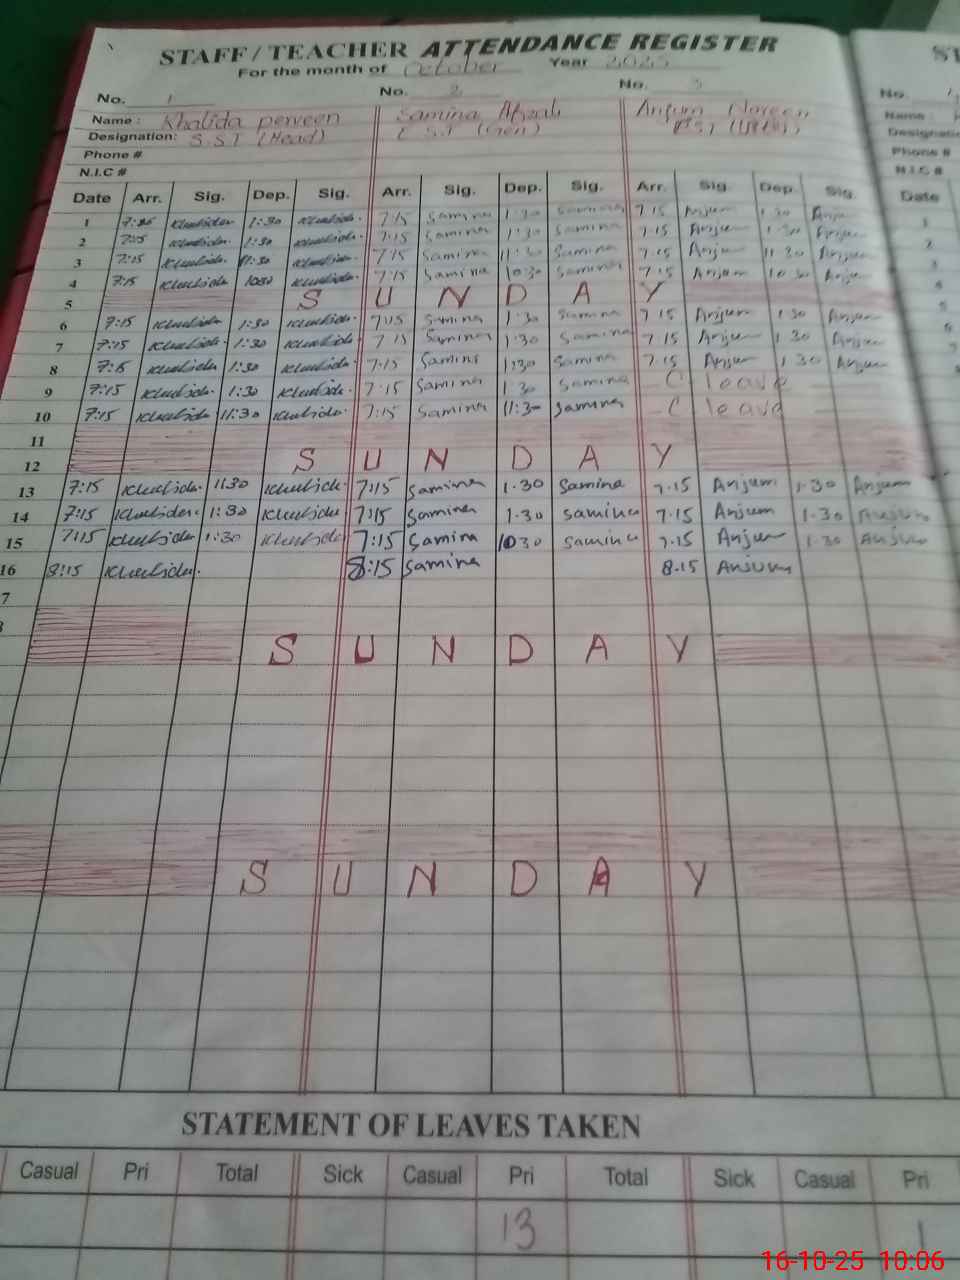 STAFF / TEACHER ATTENDANCE REGISTER
For the month of October Year 2025
No. 1 No. 2 No. 3
Name: Khalida perveen Samina Afzali Anjum Noreen
Designation: S.S.T (Head) E.S.T (Gen) EST
Phone #
N.I.C #
Date Arr. Sig. Dep. Sig. Arr. Sig. Dep. Sig. Arr. Sig. Dep. Sig.
1 7:15 Khalida 1:30 Khalida. 7:15 Samina 1:30 Samina 7.15 Anjum 1.30 Anjum
2 7:15 Khalida. 1:30 Khalida. 7:15 Samina 1:30 Samina 7.15 Anjum 1.30 Anjum
3 7:15 Khalida. 11:30 Khalida. 7:15 Samina 11:30 Samina 7.15 Anjum 11.30 Anjum
4 7:15 Khalida 1030 Khalida. 7:15 Samina 1030 Samina 7.15 Anjum 10.30 Anjum
5 S U N D A Y
6 7:15 Khalida 1:30 Khalida. 7:15 Samina 1.30 Samina 7.15 Anjum 1.30 Anjum
7 7:15 Khalida. 1:30 Khalida. 7:15 Samina 1:30 Samina 7.15 Anjum 1.30 Anjum
8 7:15 Khalida 1:30 Khalida. 7:15 Samina 1:30 Samina 7.15 Anjum 1.30 Anjum
9 7:15 Khalida. 1:30 Khalida. 7:15 Samina 1.30 Samina C leave
10 7:15 Khalida 11:30 Khalida. 7:15 Samina 11:30 Samina C leave
11
12 S U N D A Y
13 7:15 Khalida. 1130 Khalida 7:15 Samina 1.30 Samina 7.15 Anjum 1.30 Anjum
14 7:15 Khalida. 1:30 Khalida 7:15 Samina 1.30 Samina 7.15 Anjum 1.30 Anjum
15 7:15 Khalida 1:30 Khalida 7:15 Samina 1030 Samina 7.15 Anjum 1.30 Anjum
16 8:15 Khalida. 8:15 Samina 8.15 Anjum
7
S U N D A Y
S U N D A Y
STATEMENT OF LEAVES TAKEN
Casual Pri Total Sick Casual Pri Total Sick Casual Pri
13 1
No.
Name:
Designatio
Phone #
N.I.C #
Date
1
2
16-10-25 10:06